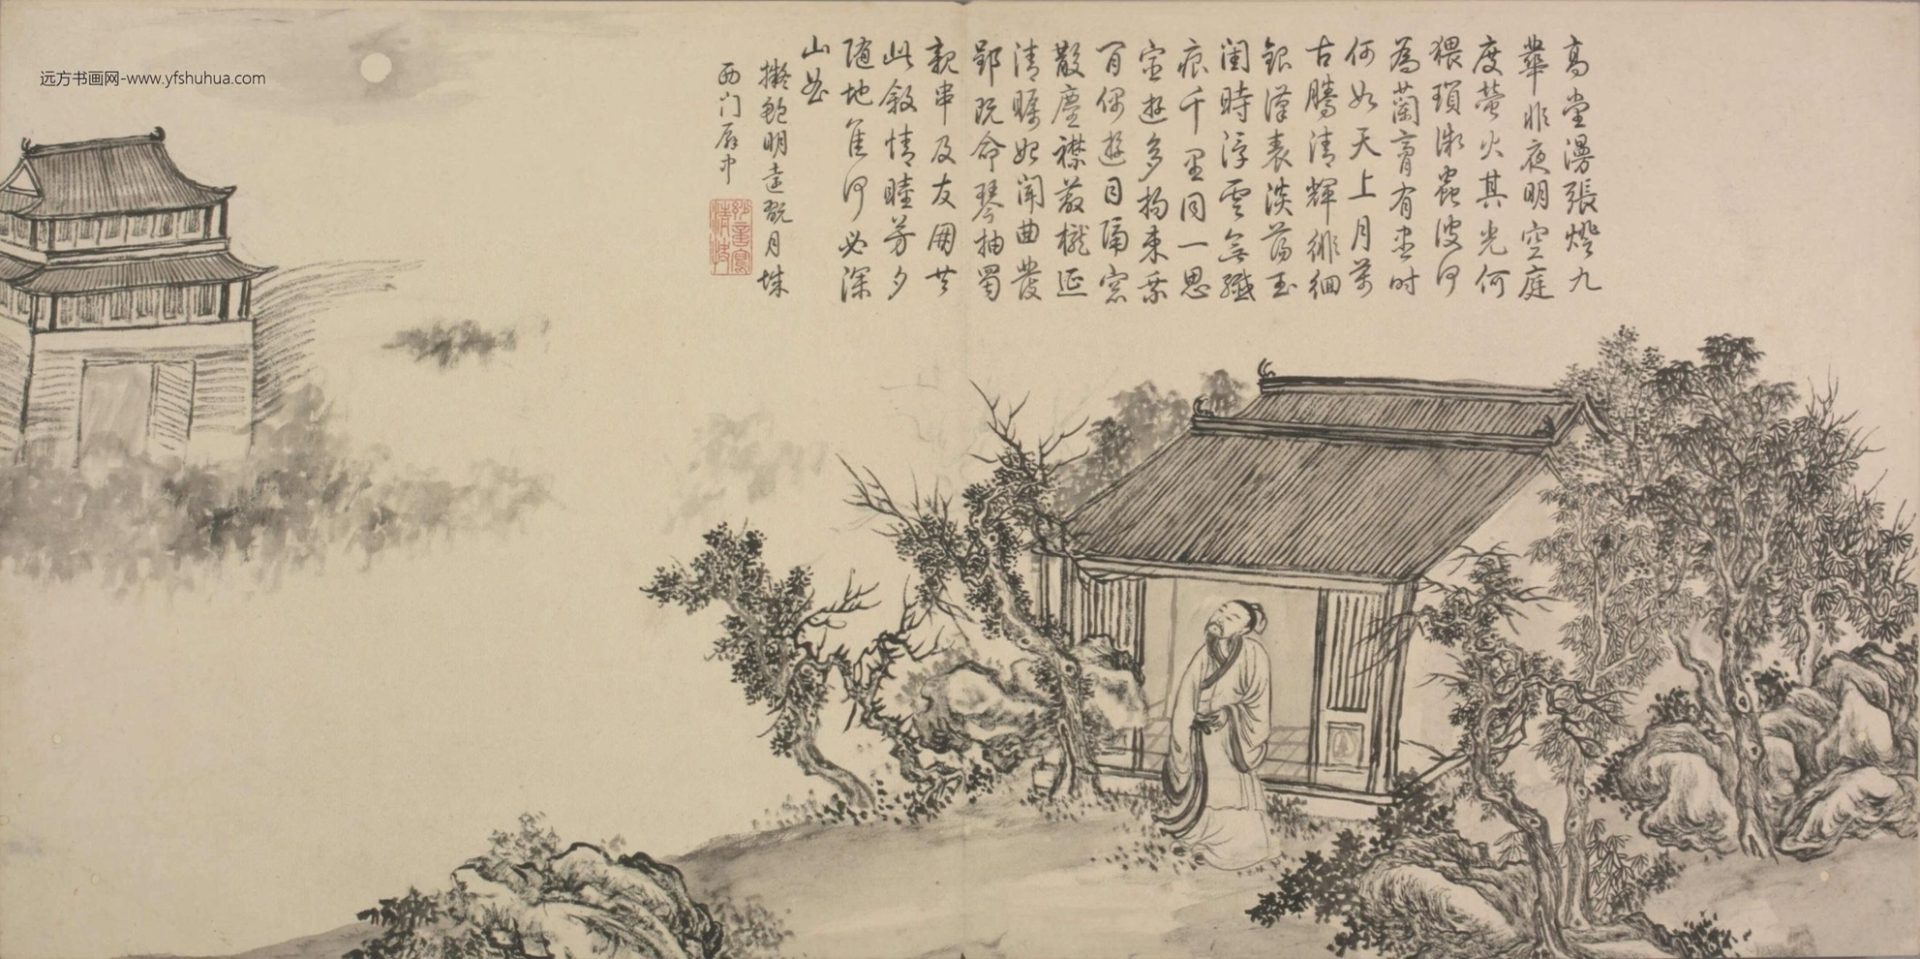 远方书画网-www.yfshuhua.com
高堂漫張燈九
華非夜明空庭
度螢火其光何
猥瑣微蟲彼何
為蘭膏有盡时
何如天上月萬
古騰清輝徘徊
銀漢表淡蕩玉
閨時浮雲無纖
痕千里同一思
宦遊多拘束乘
間偶遊目隔窓
散塵襟啟櫳延
清矚如聞曲發
郢既命琴抽蜀
親串及友朋共
此敘情睦芳夕
隨地佳何必深
山曲
擬鮑明遠翫月城
西门廨中